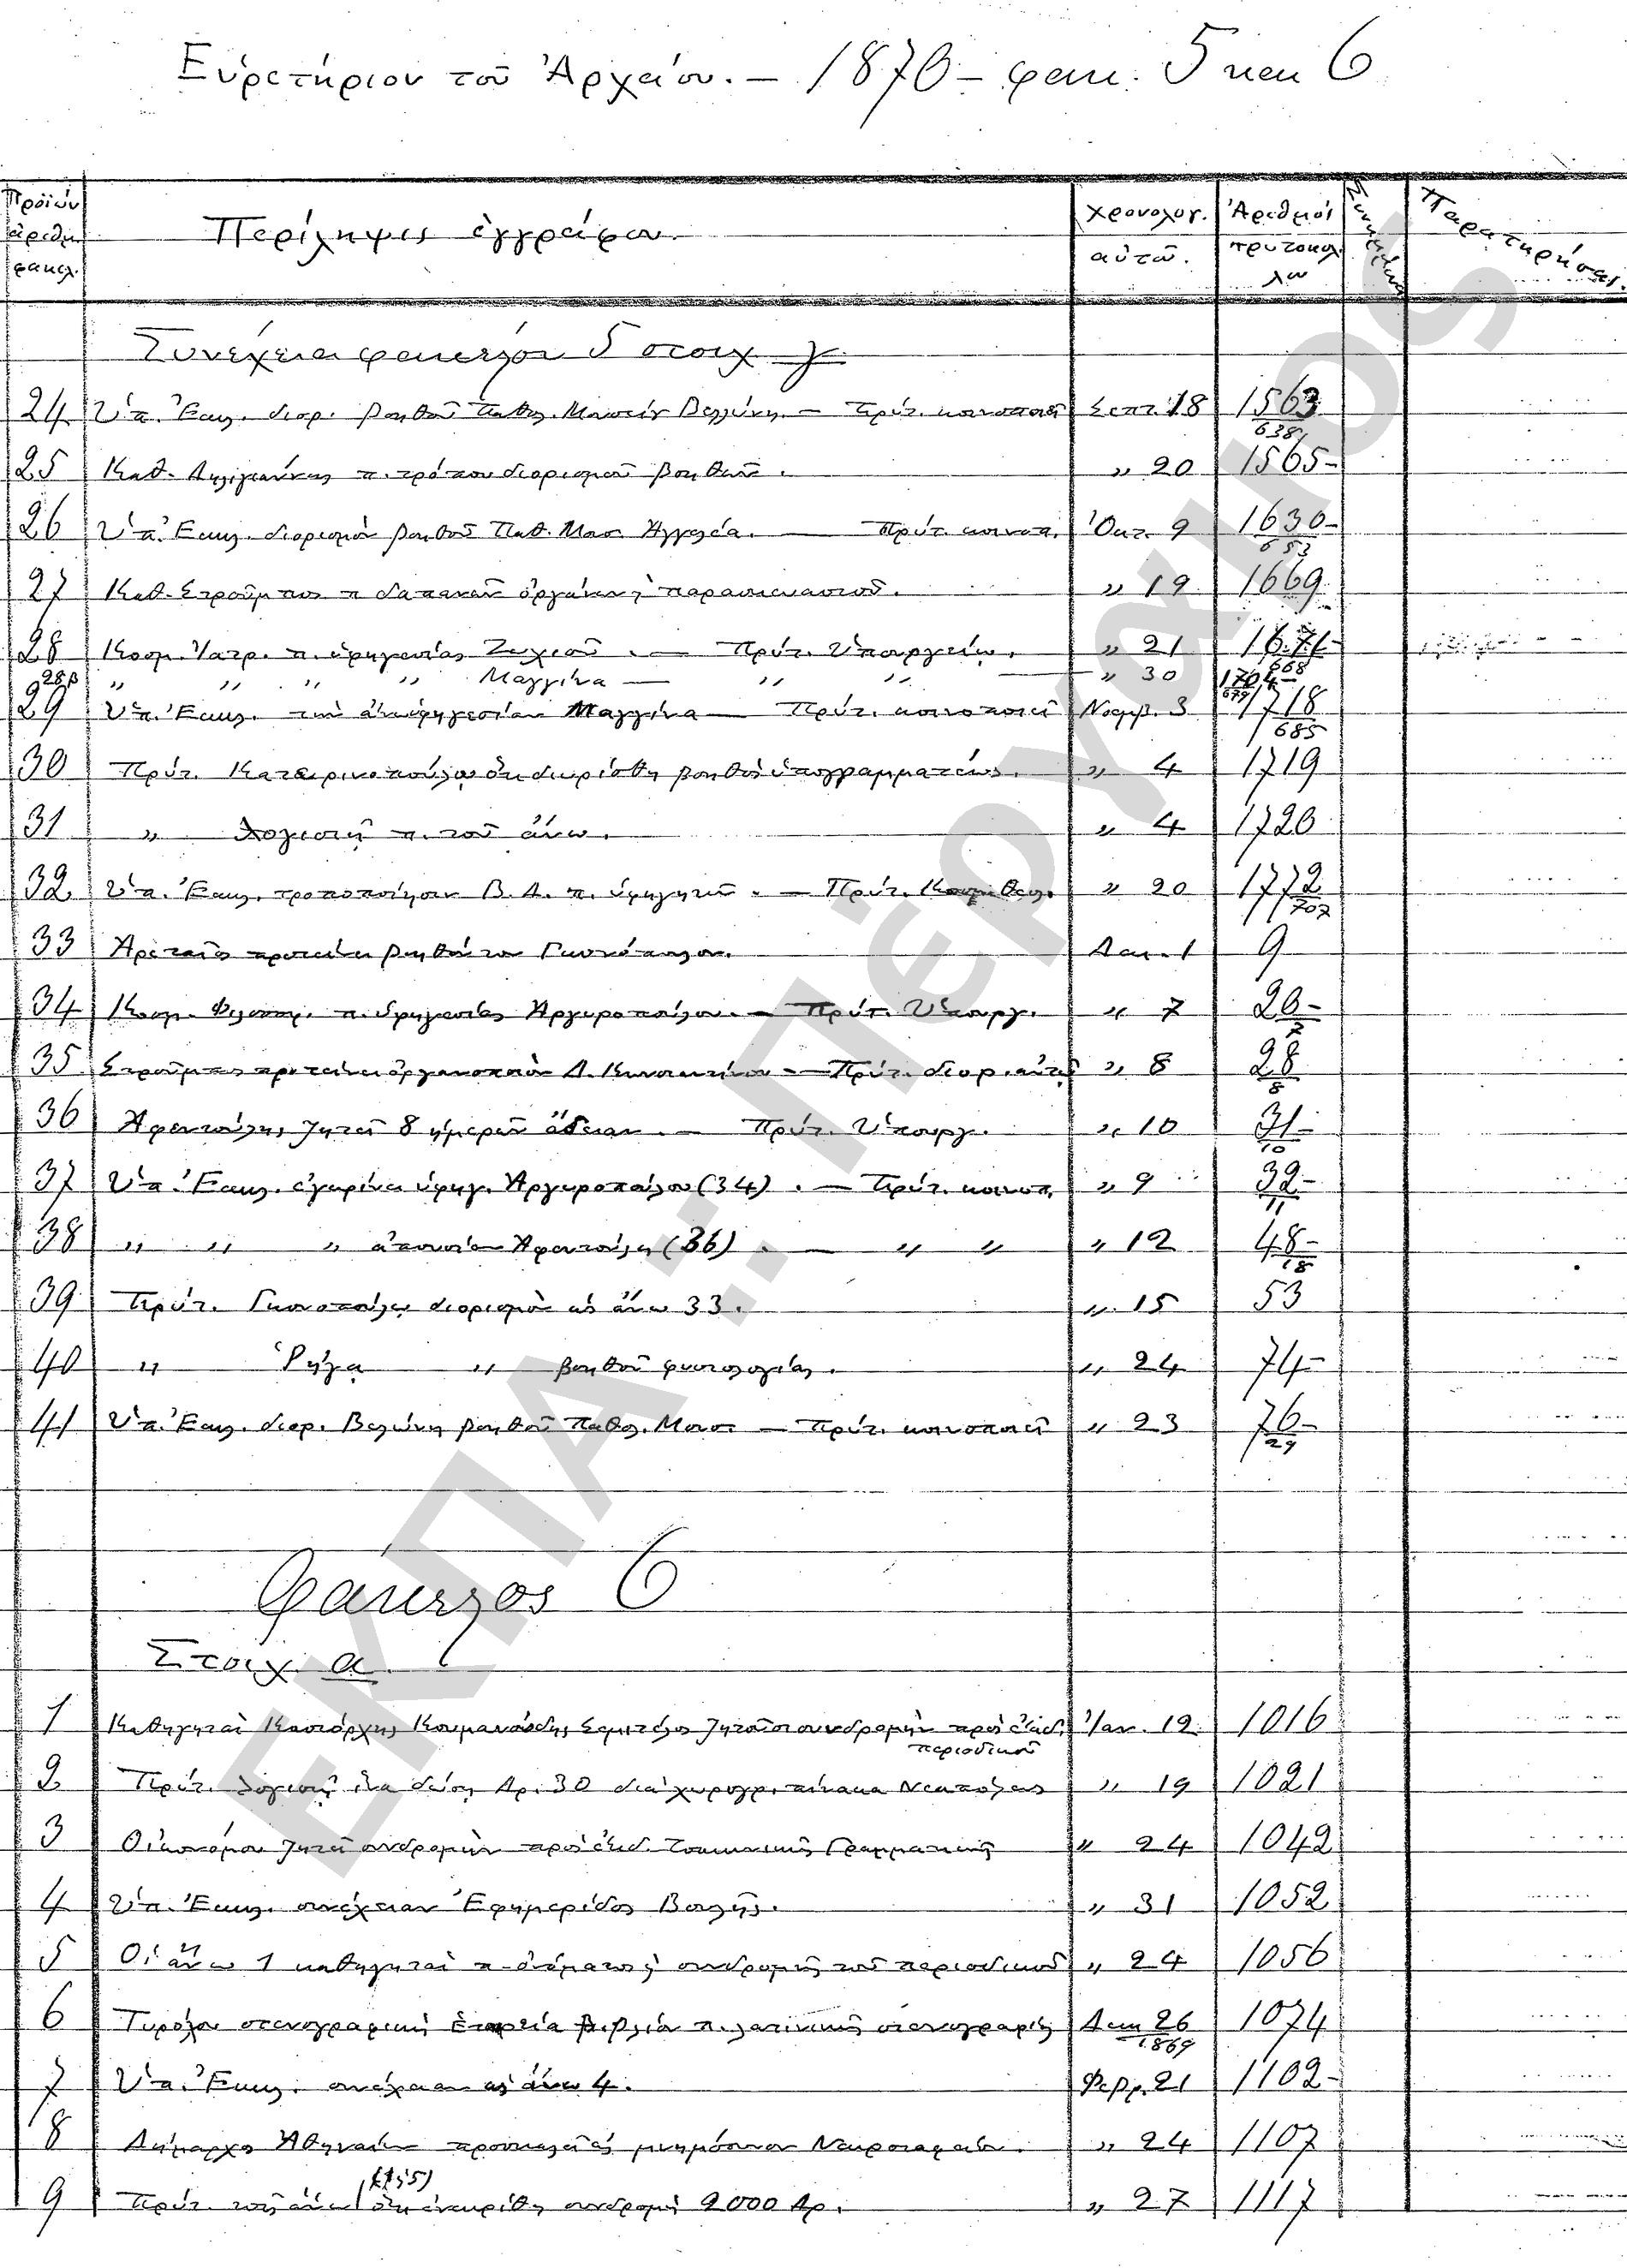 Εὑρετήριον τοῦ Ἀρχείου. – 1870 – φακ. 5 και 6
Προϊών ἀριθμ. φακελ.
Περίληψις ἐγγράφου
Χρονολογ. αὐτοῦ.
Ἀριθμοί πρωτοκόλλου
Παρατηρήσεις.
Συνέχεια φακέλου 5 στοιχ γ
24 Ὑπ. Ἐκκλ. διορ. βοηθοῦ Παθολ. Μουσείου Βελλίνη – Πρύτ. κοινοποιεῖ Σεπτ. 18 1563 638
25 Καθ. Δεληγιάννης π. τρόπου διορισμοῦ βοηθῶν. „ 20 1565-
26 Ὑπ. Ἐκκλ. διορισμὸν βοηθοῦ Παθ. Μουσ. Ἀγγελέα. — Πρύτ. κοινοπ. Ὀκτ. 9 1630- 653
27 Καθ. Στροῦμπος π. δαπανῶν ὀργάνων παρασκευαστοῦ. „ 19 1669
28 Κοσμ. Ἰατρ. π. ὑφηγεσίας Ζωχιοῦ. — Πρύτ. Ὑπουργείῳ. „ 21 1671- 668
28β „ „ „ „ Μαγγίνα — „ „ — „ 30 1704- 679
29 Ὑπ. Ἐκκλ. τὴν ὑφηγεσίαν Μαγγίνα — Πρύτ. κοινοποιεῖ Νοεμβ. 3 1718 685
30 Πρύτ. Κατερινοπούλῳ ὅτι διωρίσθη βοηθὸς ὑπογραμματέως. „ 4 1719
31 „ Λογιστῇ π. τοῦ ἄνω. „ 4 1720
32 Ὑπ. Ἐκκλ. τροποποίησιν Β. Δ. π. ὑφηγητῶν. – Πρύτ. Κοσμ. Θεολ. „ 20 1772 707
33 Ἀρεταῖος προτείνει βοηθόν του Γιαννόπουλον. Δεκ. 1 9
34 Κοσμ. Φιλοσοφ. π. ὑφηγεσίας Ἀργυροπούλου. – Πρύτ. Ὑπουργ. „ 7 26- 7
35 Στροῦμπος προτείνει ὀργανοποιὸν Δ. — Πρύτ. διορ. αὐτὸν „ 8 28 8
36 Ἀφεντούλης ζητεῖ 8 ἡμερῶν ἄδειαν. – Πρύτ. Ὑπουργ. „ 10 31- 10
37 Ὑπ. Ἐκκλ. ἐγκρίνει ὑφηγ. Ἀργυροπούλου (34). – Πρύτ. κοινοπ. „ 9 32- 11
38 „ „ „ ἀπουσίαν Ἀφεντούλη (36). — „ „ „ 12 48- 18
39 Πρύτ. Γιαννοπούλῳ διορισμὸν ὡς ἄνω 33. „ 15 53
40 „ Ῥήγα „ βοηθοῦ φυσιολογίας. „ 24 74-
41 Ὑπ. Ἐκκλ. διορ. Βελίνη βοηθοῦ Παθολ. Μουσ. – Πρύτ. κοινοποιεῖ „ 23 76- 29
Φάκελλος 6
Στοιχ. α
1 Καθηγηταὶ Καστόρχης Κουμανούδης Σεμιτέλος ζητοῦσι συνδρομὴν πρὸς ἔκδ. περιοδικοῦ Ἰαν. 12 1016
2 Πρύτ. Λογιστῇ ἵνα δώσῃ Δρ. 30 διὰ χωρογρ. πίνακα Νεαπόλεως „ 19 1021
3 Οἰκονόμου ζητεῖ συνδρομὴν πρὸς ἔκδ. Τσακωνικῆς Γραμματικῆς „ 24 1042
4 Ὑπ. Ἐκκλ. συνέχειαν Ἐφημερίδος Βουλῆς. „ 31 1052
5 Οἱ ἄνω 1 καθηγηταὶ π. ὀνόματος συνδρομῆς τοῦ περιοδικοῦ „ 24 1056
6 Τυρόλου στενογραφικὴ ἑταιρεία βιβλία π. λατινικῆς στενογραφίας Δεκ 26 1869 1074
7 Ὑπ. Ἐκκλ. συνέχειαν ὡς ἄνω 4. Φεβρ. 21 1102-
8 Δήμαρχος Ἀθηναίων προσκαλεῖ εἰς μνημόσυνον „ 24 1107
9 Πρύτ. τοῖς ἄνω (1,5) ὅτι ἐνεκρίθη συνδρομὴ 2000 Δρ. „ 27 1117
ΕΚΠΑ:: Πέργαμος